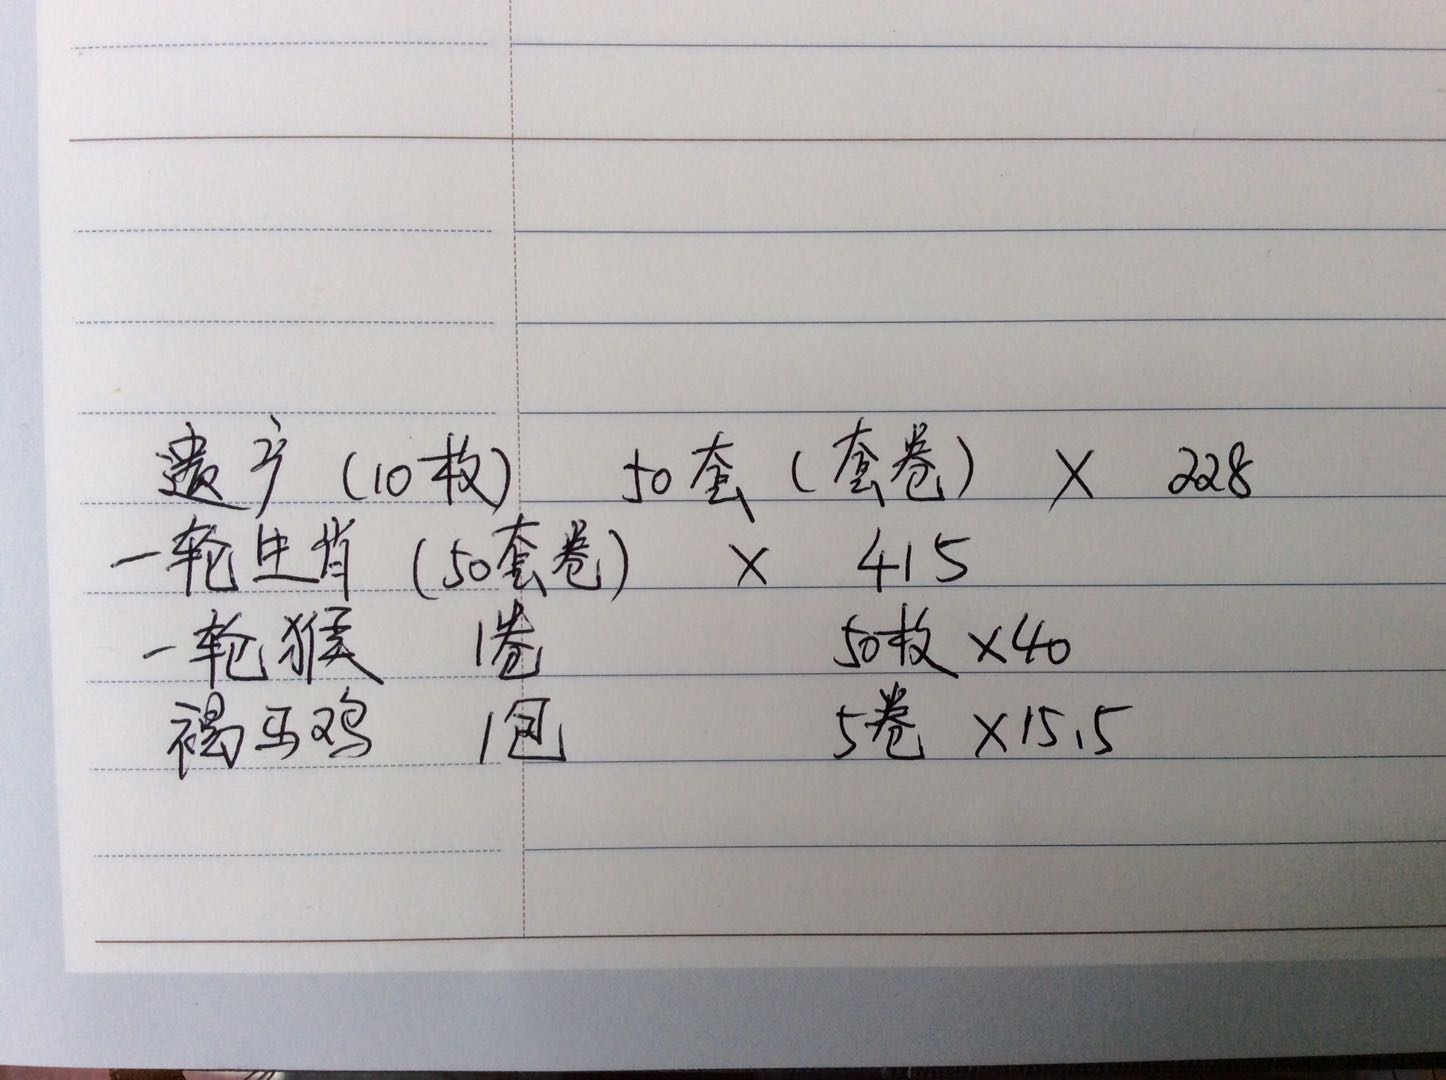 遗产（10枚） 50套（套卷） × 228
一轮生肖（50套卷） × 415
一轮猴 1卷 50枚 ×40
褐马鸡 1包 5卷 ×15.5